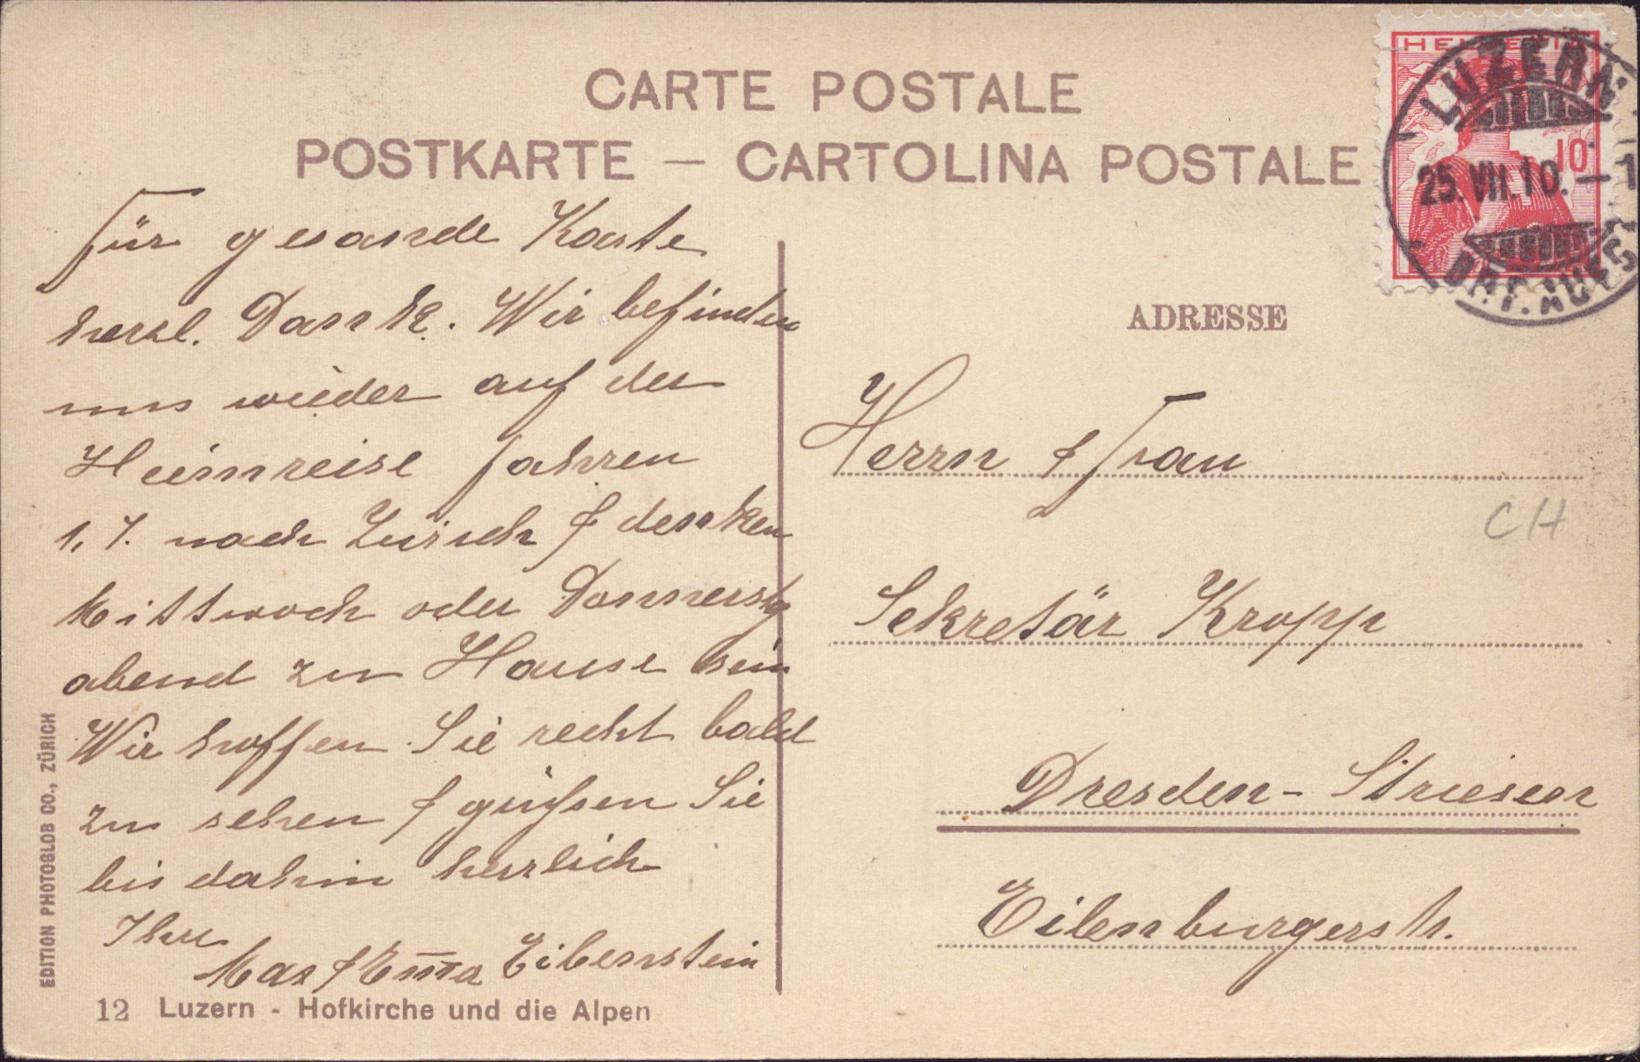 CARTE POSTALE
POSTKARTE — CARTOLINA POSTALE
HELVETIA
10
LUZERN
25.VII.10.–1
BRF. AUFG
ADRESSE
für gesande Karte
herzl. Dank. Wir befinden
uns wieder auf der
Heimreise fahren
nach Zürich & denken
Mittwoch oder Donnerstg
abend zu Hause sein
Wir hoffen Sie recht bald
zu sehen & grüßen Sie
bis dahin herzlich
Ihre
Max & Em̅a Eibenstein
Herrn & Frau
CH
Sekretär Kropp
Dresden - Striesen
Eilenburgerstr.
EDITION PHOTOGLOB CO., ZÜRICH
12 Luzern - Hofkirche und die Alpen